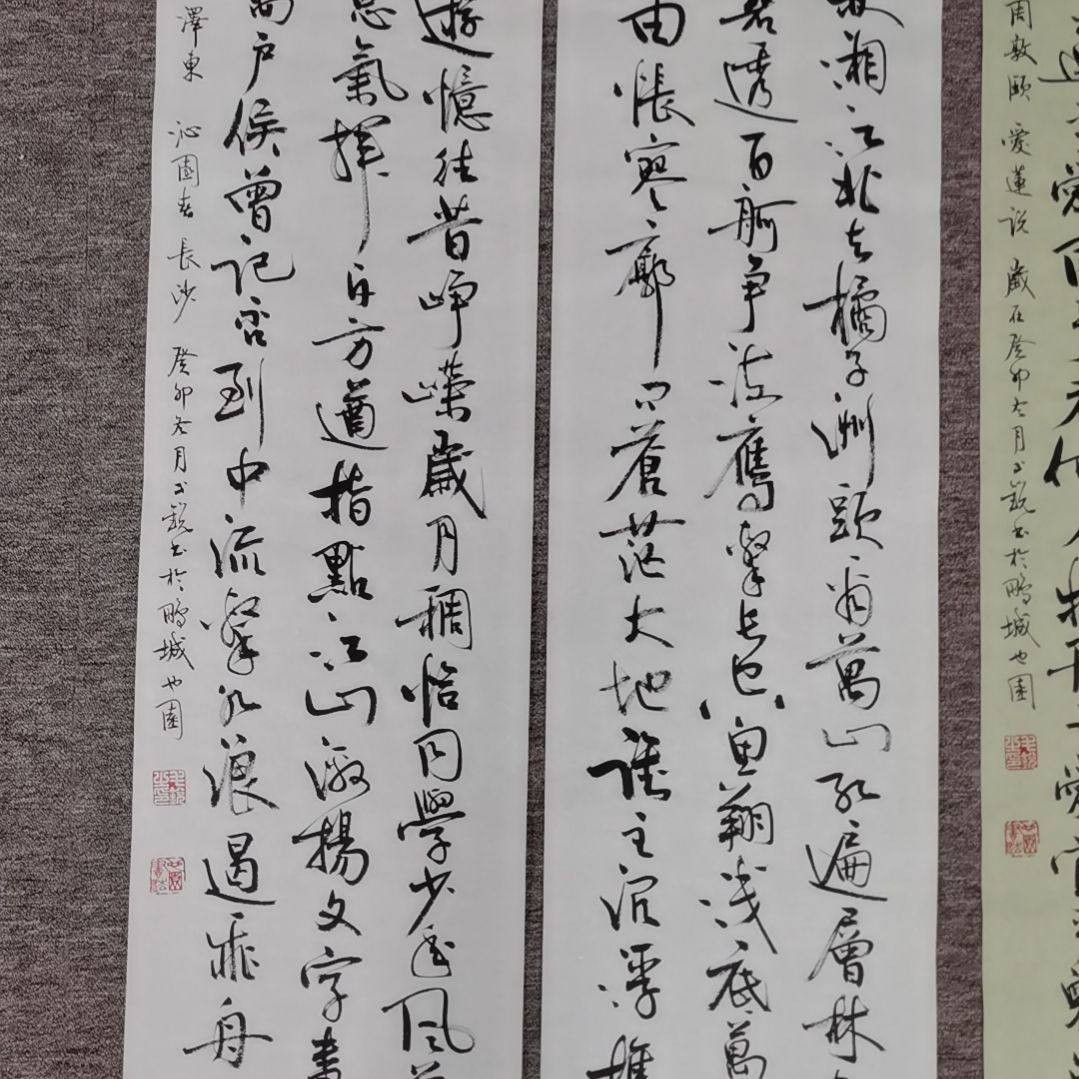 蓮之愛同予者何人牡丹之愛宜乎衆
周敦頤 愛蓮説 歲在癸卯冬月 書於鵬城也園
湘江北去橘子洲頭看萬山紅遍層林
碧透百舸争流鷹擊長空魚翔淺底萬
由悵寥廓问蒼茫大地誰主沉浮攜
遊憶往昔崢嶸歲月稠恰同學少年風
氣揮斥方遒指點江山激揚文字書
萬户侯曾記否到中流擊水浪遏飛舟
澤東 沁園春 長沙 癸卯冬月 書於鵬城也園